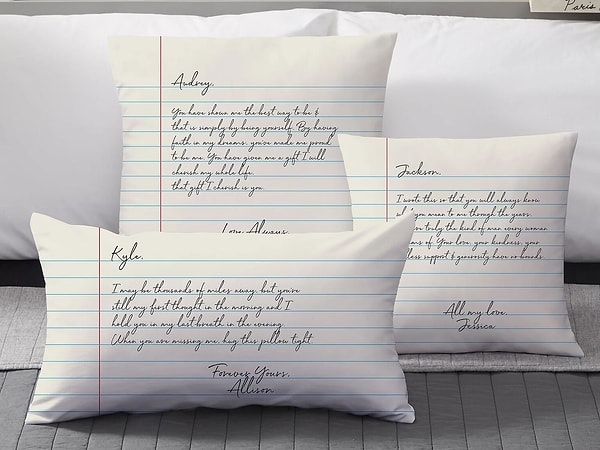 Paris
Audrey,
You have shown me the best way to be &
that is simply by being yourself. By having
faith in my dreams, you've made me proud
to be me. You have given me a gift I will
cherish my whole life,
that gift I cherish is you.
Love Always,
Jackson,
I wrote this so that you will always know
you mean to me through the years.
truly the kind of man every woman
of. Your love, your kindness, your
support & generosity have no bounds.
All my love,
Jessica
Kyle,
I may be thousands of miles away, but you're
still my first thought in the morning and I
hold you in my last breath in the evening.
When you are missing me, hug this pillow tight.
Forever Yours,
Allison